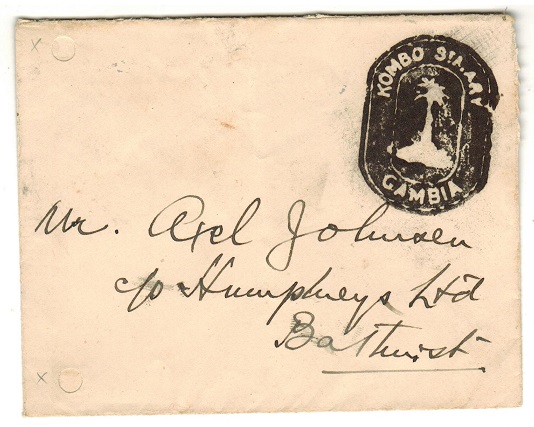 KOMBO St. MARY
GAMBIA
Mr. Axel Johnsen
c/o Humphreys Ltd
Bathurst.
x
x